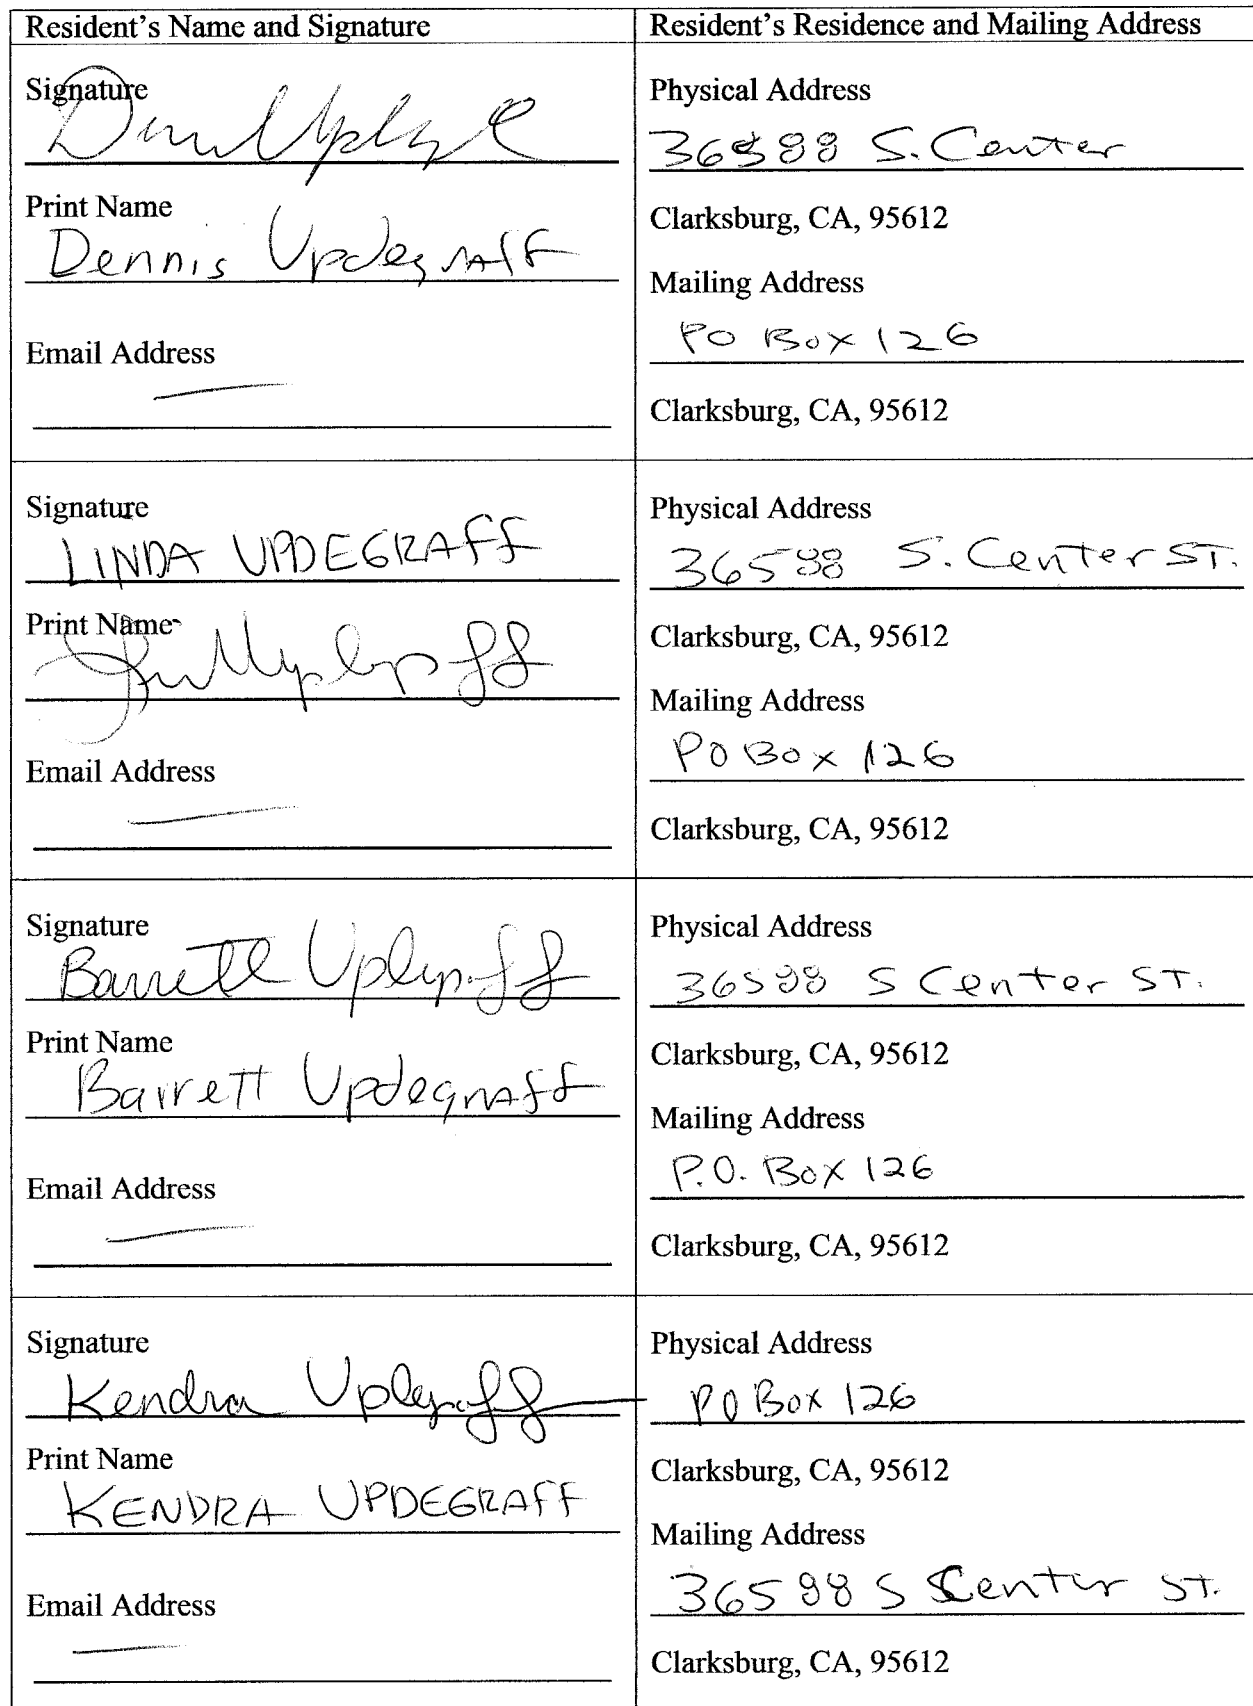 Resident's Name and Signature
Resident's Residence and Mailing Address
Signature
Print Name
Dennis Updegraff
Email Address
Physical Address
36588 S. Center
Clarksburg, CA, 95612
Mailing Address
PO Box 126
Clarksburg, CA, 95612
Signature
LINDA UPDEGRAFF
Print Name
Email Address
Physical Address
36588 S. Center ST.
Clarksburg, CA, 95612
Mailing Address
PO Box 126
Clarksburg, CA, 95612
Signature
Barrett Updegraff
Print Name
Barrett Updegraff
Email Address
Physical Address
36588 S Center ST.
Clarksburg, CA, 95612
Mailing Address
P.O. Box 126
Clarksburg, CA, 95612
Signature
Kendra Updegraff
Print Name
KENDRA UPDEGRAFF
Email Address
Physical Address
PO Box 126
Clarksburg, CA, 95612
Mailing Address
36588 S Center ST.
Clarksburg, CA, 95612